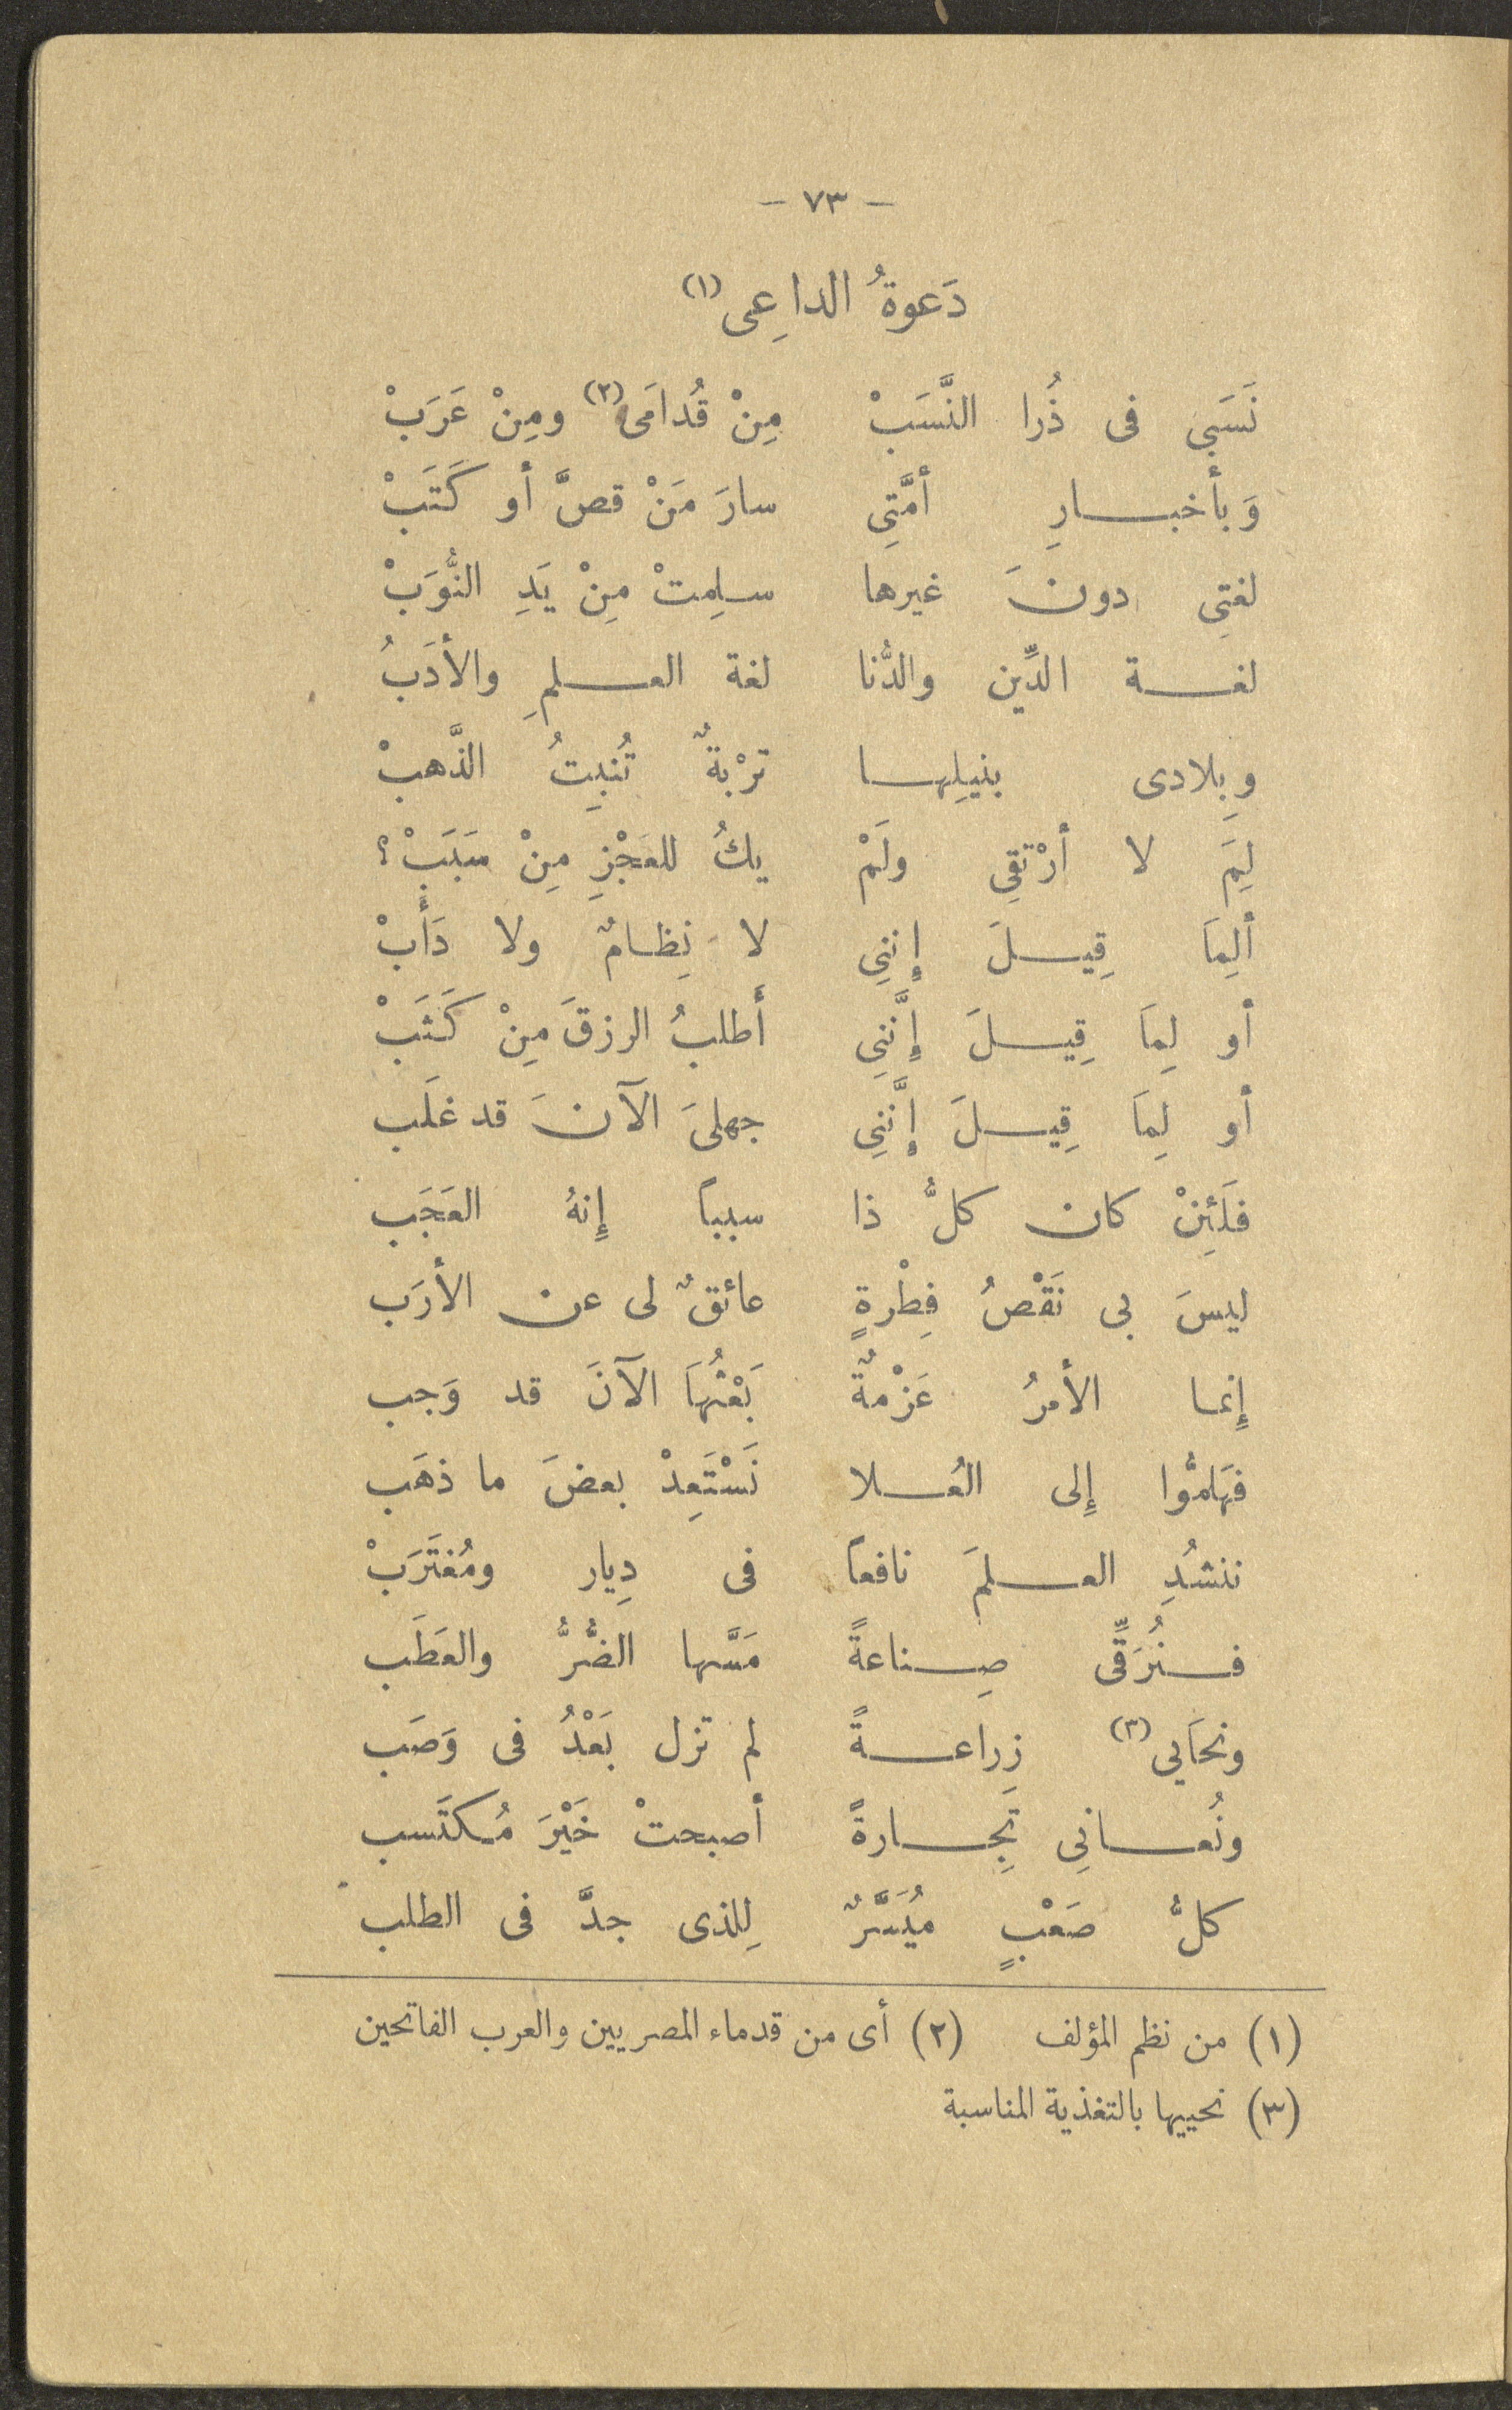 — ٧٣ —
دَعوةُ الداعِى (١)
نَسَبِى فى ذُرا النَّسَبْ مِنْ قُدامَى (٢) ومِنْ عَرَبْ
وَبأخبارِ أمَّتِى سارَ مَنْ قصَّ أو كَتَبْ
لغتِى دونَ غيرها سلِمتْ مِنْ يَدِ النُّوَبْ
لغة الدِّين والدُّنا لغة العلمِ والأدَبُ
وبِلادى بنيلِها ترْبةٌ تُنبِتُ الذَّهبْ
لِمَ لا أرْتقِى ولَمْ يكُ للعَجْزِ مِنْ سَبَبْ؟
ألِمَا قِيلَ إِننِى لا نِظامٌ ولا دَأَبْ
أو لِمَا قِيلَ إِنَّنِى أَطلبُ الرزقَ مِنْ كَثَبْ
أو لِمَا قِيلَ إِنَّنِى جهلىَ الآنَ قد غلَب
فلَئِنْ كان كلُّ ذا سبباً إِنهُ العَجَب
ليسَ بى نَقْصُ فِطْرةٍ عائقٌ لى عن الأرَب
إِنما الأمرُ عَزْمةٌ بَعْثُهَا الآنَ قد وَجب
فهَلمُّوا إِلى العُلا نَسْتَعِدْ بعضَ ما ذهَب
ننشدُِ العلمَ نافعاً فى دِيار ومُغتَرَبْ
فنُرَقِّى صِناعةً مَسَّها الضُّرُّ والعَطَب
ونحَابى (٣) زِراعةً لم تزل بَعْدُ فى وَصَب
ونُعانِى تَجِارةً أصبحتْ خَيْرَ مُكتَسب
كلُّ صَعْبٍ مُيَسَّرٌ لِلذى جدَّ فى الطلب
(١) من نظم المؤلف (٢) أى من قدماء المصريين والعرب الفاتحين
(٣) نحييها بالتغذية المناسبة